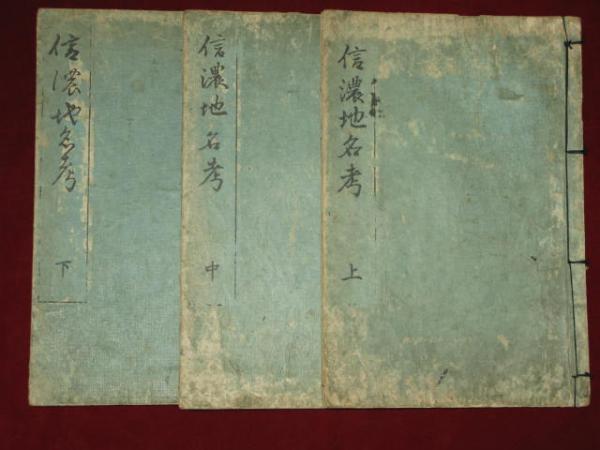 信濃地名考 上
信濃地名考 中
信濃地名考 下